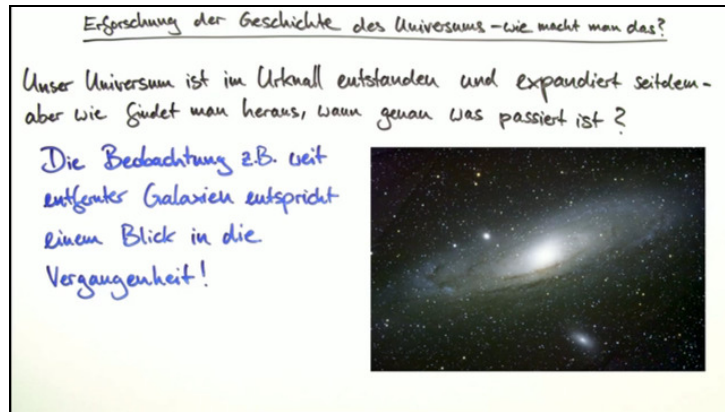 Erforschung der Geschichte des Universums – wie macht man das?
Unser Universum ist im Urknall entstanden und expandiert seitdem –
aber wie findet man heraus, wann genau was passiert ist?
Die Beobachtung z.B. weit
entfernter Galaxien entspricht
einem Blick in die
Vergangenheit!